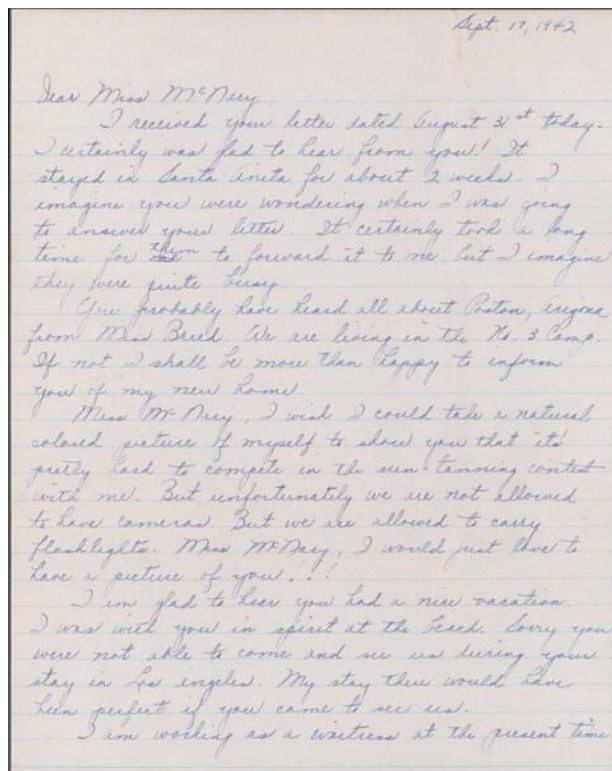 Sept. 17, 1942
Dear Miss McNary,
I received your letter dated August 31st today-
I certainly was glad to hear from you! It
stayed in Santa Anita for about 2 weeks. I
imagine you were wondering when I was going
to answer your letter. It certainly took a long
time for them to forward it to me, but I imagine
they were quite busy.
You probably have heard all about Poston, Arizona
from Miss Breed. We are living in the No. 3 Camp.
If not I shall be more than happy to inform
you of my new home.
Miss McNary, I wish I could take a natural
colored picture of myself to show you that it's
pretty hard to compete in the sun-tanning contest
with me. But unfortunately we are not allowed
to have cameras. But we are allowed to carry
flashlights. Miss McNary, I would just love to
have a picture of you!!!
I am glad to hear you had a nice vacation.
I was with you in spirit at the beach. Sorry you
were not able to come and see us during your
stay in Los Angeles. My stay there would have
been perfect if you came to see us.
I am working as a waitress at the present time